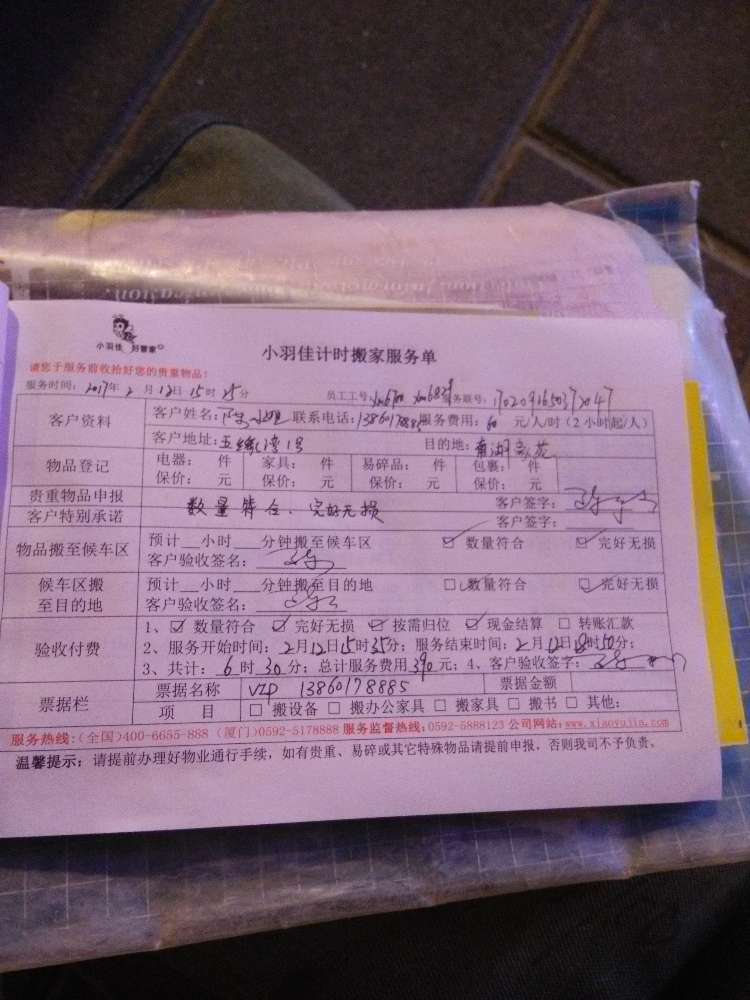 小羽佳 好管家
小羽佳计时搬家服务单
请您于服务前收拾好您的贵重物品!
服务时间: 2017年 2月 12日 15时 25分 员工工号: 服务联号:
客户资料 客户姓名: 小姐 联系电话: 13860178885 服务费用: 60 元/人/时(2小时起/人)
客户地址: 五缘湾1号 目的地:
物品登记 电器: 件 家具: 件 易碎品: 件 包裹: 件
保价: 元 保价: 元 保价: 元 保价: 元
贵重物品申报 客户签字:
客户特别承诺 数量符合、完好无损 客户签字:
物品搬至候车区 预计__小时__分钟搬至候车区 ☑ 数量符合 ☑ 完好无损
客户验收签名:
候车区搬至目的地 预计__小时__分钟搬至目的地 ☑ 数量符合 ☑ 完好无损
客户验收签名:
验收付费 1、☑ 数量符合 ☑ 完好无损 ☑ 按需归位 ☑ 现金结算 ☐ 转账汇款
2、服务开始时间: 2月12日15时35分; 服务结束时间: 2月12日18时50分;
3、共计: 6 时 30 分; 总计服务费用 390 元; 4、客户验收签字:
票据栏 票据名称 VIP 13860178885 票据金额
项 目 ☐ 搬设备 ☐ 搬办公家具 ☐ 搬家具 ☐ 搬书 ☐ 其他:
服务热线:(全国)400-6655-888 (厦门)0592-5178888 服务监督热线:0592-5888123 公司网站:www.xiaoyujia.com
温馨提示: 请提前办理好物业通行手续,如有贵重、易碎或其它特殊物品请提前申报,否则我司不予负责。